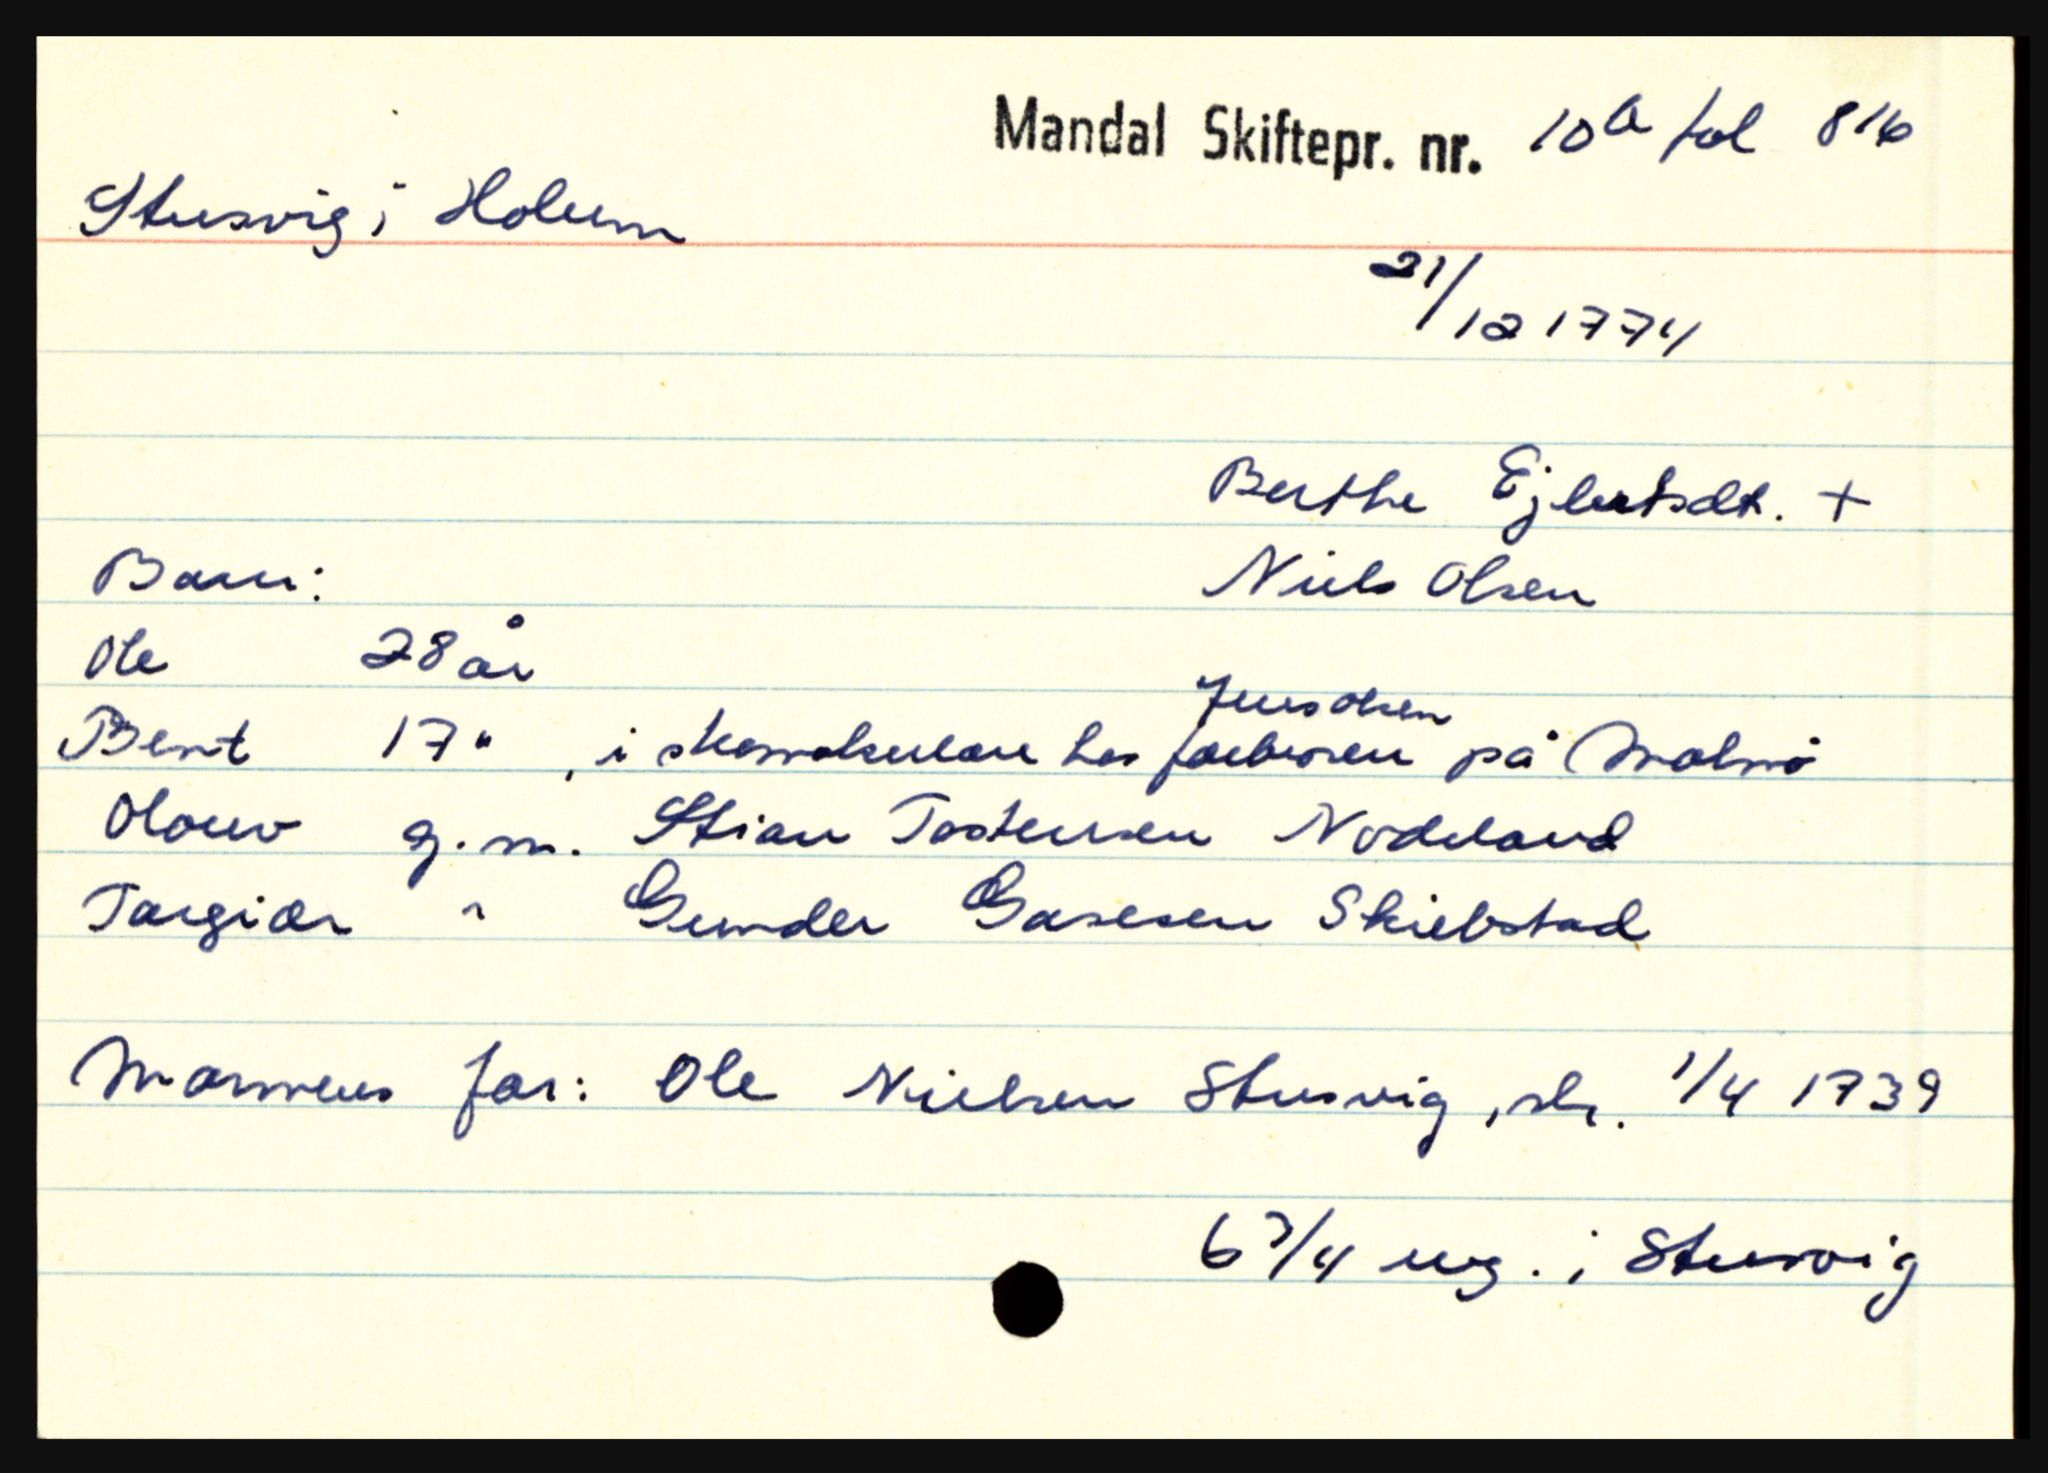 Mandal Skiftepr. nr. 10b fol 816
Stusvig i Holum
21/12 1774
Berthe Ejlertsdt. +
Barn: Niels Olsen
Ole 28 år
Jens Olsen
Bent 17 " , i skomakerlære hos farbroren på Malmø
Olouv g.m. Stian Tostensen Nodeland
Targiær " Gunder Gasesen Skiebstad
Mannens far: Ole Nielsen Stusvig, sk. 1/4 1739
6 3/4 eng. i Stusvig